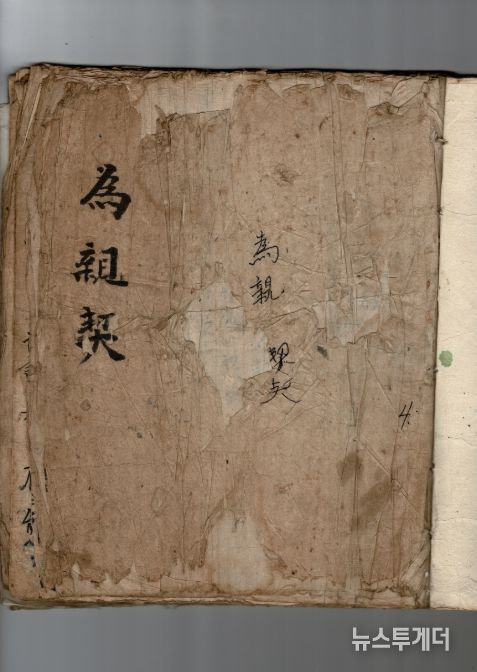 為親契
為親契
4.
뉴스투게더